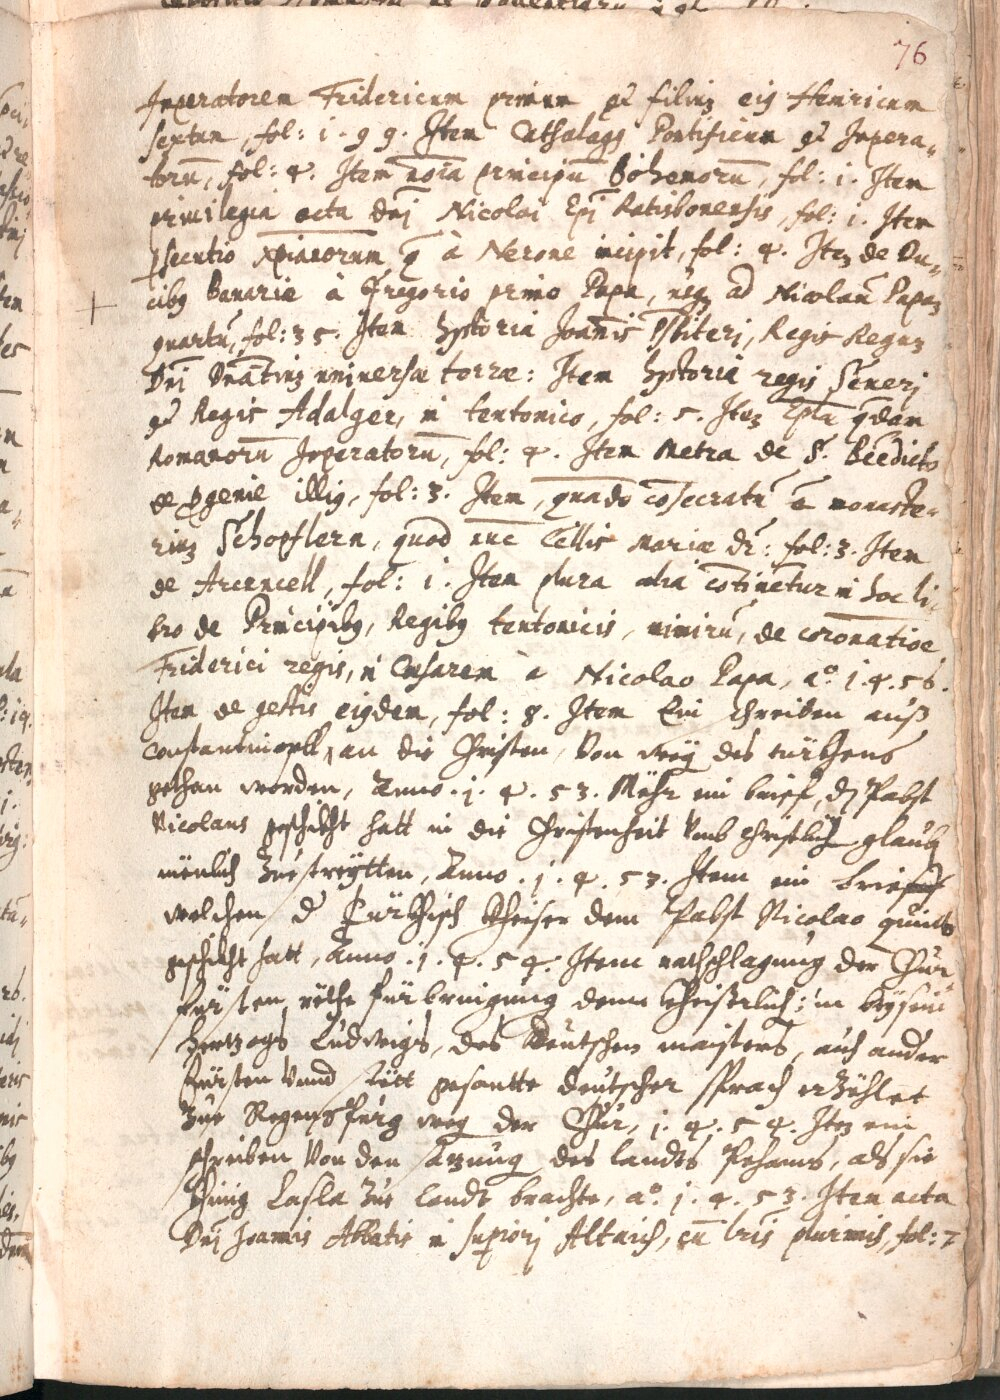 76
Imperatorem Fridericum primum et filium eius Henricum
sextum, fol: 1.99. Item Cathalagus Pontificum et Impera-
torū, fol: 4. Item noīa principū Bohemorū, fol: 1. Item
priuilegia acta dnj Nicolai Epj Ratisbonensis, fol: 1. Item
psecutio xpianorum q̄ à Nerone incipit, fol: 4. Itē de Du-
cibꝫ Bauariæ à Gregorio primo Papa, usqꝫ ad Nicolaū Papaꝫ
quartū, fol: 35. Item hystoria Joannis Pbiterj, Regis Regum
Dnj Dnātiuꝫ uniuersæ terræ: Item hystoria regis Seuerj
et Regis Adalger, in teutonico, fol: 5. Itē Epla q̄dam
Romanorū Imperatorū, fol: 4. Item Metra de S. Bēedicto
de pgenie illiꝫ, fol: 3. Item, quādo cōsecratū ē monaste-
riuꝫ Schopflern, quod nūc Cellis Mariæ dr̄: fol: 3. Item
de Arcencell, fol: 1. Item plura alia cōtinētur in hoc li-
bro de Principibꝫ, Regibꝫ teutonicis, nimirū, de coronatiōe
Friderici regis, in Cæsarem à Nicolao Papa, aº 1.4.56.
Item de gestis eiꝫdem, fol: 8. Item Ein schreiben auß
Constantinopll, an die Christen, Von weg des türkhens
gethan worden, Anno .1.4.53. Mehr ein brief, dē Pabst
Nicolaus geschikht hatt in die Christenheit vmb christlich glaub
menlich zue streytten, Anno .1.4.53. Item ein brief
welchen d Türkhisch Kheiser dem Pabst Nicolao quinto
geschikht hatt, Anno .1.4.54. Item rathschlagung der Chur
fürsten, räthe fürbringung denn kheißerlich: in beysein
Hertzogs Ludwigs, des Deutschen maisters, auch ander
fürsten vnnd stett gesantte deutscher sprach erzöhlet
zue Regenspurg weg der Chur, 1.4.54. Itē ein
schreiben Von den satzung des landts Pehams, als sie
khinig Lasla zue landt brachte, aº 1.4.53. Item acta
Dnj Joannis Abbatis in supiorj Altaich, cū lris plurimis, fol: 7